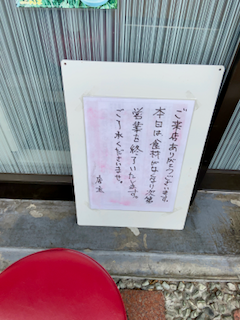 ご来店ありがとうございます。
本日は食材がなくなり次第
営業を終了いたします。
ご了承くださいませ。
店主